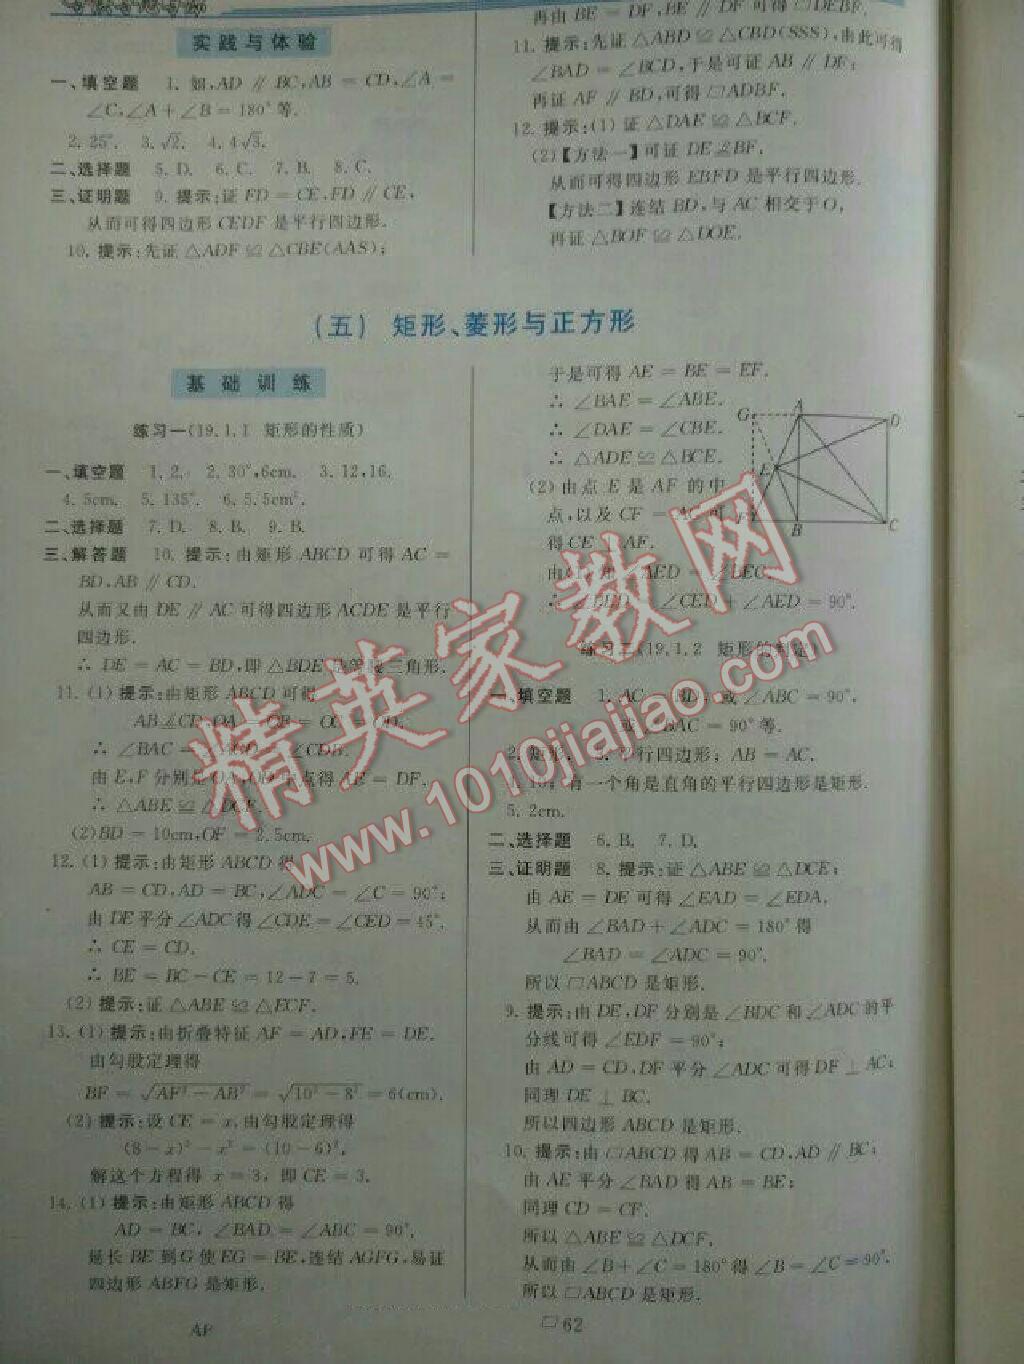 实践与体验
一、填空题 1. 如,AD ∥ BC,AB = CD,∠A =
∠C,∠A + ∠B = 180°等.
2. 25°. 3. √2. 4. 4√3.
二、选择题 5. D. 6. C. 7. B. 8. C.
三、证明题 9. 提示:证 FD = CE,FD ∥ CE,
从而可得四边形 CEDF 是平行四边形.
10. 提示:先证 △ADF ≌ △CBE(AAS);
再由 BE = DF,BE ∥ DF 可得 □DEBF.
11. 提示:先证 △ABD ≌ △CBD(SSS),由此可得
∠BAD = ∠BCD,于是可证 AB ∥ DF;
再证 AF ∥ BD,可得 □ADBF.
12. 提示:(1) 证 △DAE ≌ △BCF.
(2)【方法一】可证 DE BF.
从而可得四边形 EBFD 是平行四边形.
【方法二】连结 BD,与 AC 相交于O,
再证 △BOF ≌ △DOE.
(五) 矩形、菱形与正方形
基础训练
练习一(19.1.1 矩形的性质)
一、填空题 1. 2. 2. 30°,6cm. 3. 12,16.
4. 5cm. 5. 135°. 6. 5.5cm².
二、选择题 7. D. 8. B. 9. B.
三、解答题 10. 提示:由矩形 ABCD 可得 AC =
BD,AB ∥ CD.
从而又由 DE ∥ AC 可得四边形 ACDE 是平行
四边形.
∴ DE = AC = BD,即 △BDE 是等腰三角形.
11. (1) 提示:由矩形 ABCD 可得
AB CD,OA = OB = OC = OD.
∴ ∠BAC = = ∠CDB.
由 E,F 分别是 OA, 点得 AE = DF.
∴ △ABE ≌ △DCF.
(2) BD = 10cm,OF = 2.5cm.
12. (1) 提示:由矩形 ABCD 得
AB = CD,AD = BC,∠ADC = ∠C = 90°;
由 DE 平分 ∠ADC 得 ∠CDE = ∠CED = 45°.
∴ CE = CD.
∴ BE = BC − CE = 12 − 7 = 5.
(2) 提示:证 △ABE ≌ △ECF.
13. (1) 提示:由折叠特征 AF = AD,FE = DE.
由勾股定理得
BF = √AF² − AB² = √10² − 8² = 6(cm).
(2) 提示:设 CE = x,由勾股定理得
(8 − x)² − x² = (10 − 6)².
解这个方程得 x = 3, 即 CE = 3.
14. (1) 提示:由矩形 ABCD 得
AD = BC, ∠BAD = ∠ABC = 90°,
延长 BE 到 G 使 EG = BE,连结 AGFG,易证
四边形 ABFG 是矩形.
于是可得 AE = BE = EF.
∴ ∠BAE = ∠ABE.
∴ ∠DAE = ∠CBE.
∴ △ADE ≌ △BCE.
(2) 由点 E 是 AF 的中
点,以及 CF = AC 可
得 CE ⊥ AF.
由(1) 知 ∠AED = ∠BEC.
∴ ∠BED = ∠CED + ∠AED = 90°.
G A D
E
F B C
练习二(19.1.2 矩形的判定)
一、填空题 1. AC = BD, 或 ∠ABC = 90°,
或 ∠BAC = 90°等.
2. 矩形. 3. 平行四边形; AB = AC.
4. 10; 有一个角是直角的平行四边形是矩形.
5. 2cm.
二、选择题 6. B. 7. D.
三、证明题 8. 提示:证 △ABE ≌ △DCE;
由 AE = DE 可得 ∠EAD = ∠EDA.
从而由 ∠BAD + ∠ADC = 180°得
∠BAD = ∠ADC = 90°.
所以 □ABCD 是矩形.
9. 提示:由 DE,DF 分别是 ∠BDC 和 ∠ADC 的平
分线可得 ∠EDF = 90°;
由 AD = CD,DF 平分 ∠ADC 可得DF ⊥ AC;
同理 DE ⊥ BC.
所以四边形 ABCD 是矩形.
10. 提示:由 □ABCD 得 AB = CD,AD ∥ BC;
由 AE 平分 ∠BAD 得 AB = BE;
同理 CD = CF.
所以 △ABE ≌ △DCF.
从而由 ∠B + ∠C = 180°得 ∠B = ∠C = 90°.
所以 □ABCD 是矩形.
62
精英家教网
www.1010jiajiao.com